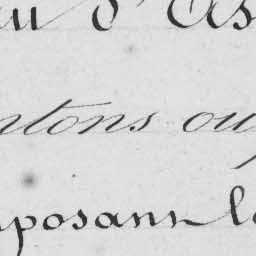 eu d'As
ntons ou
posans le